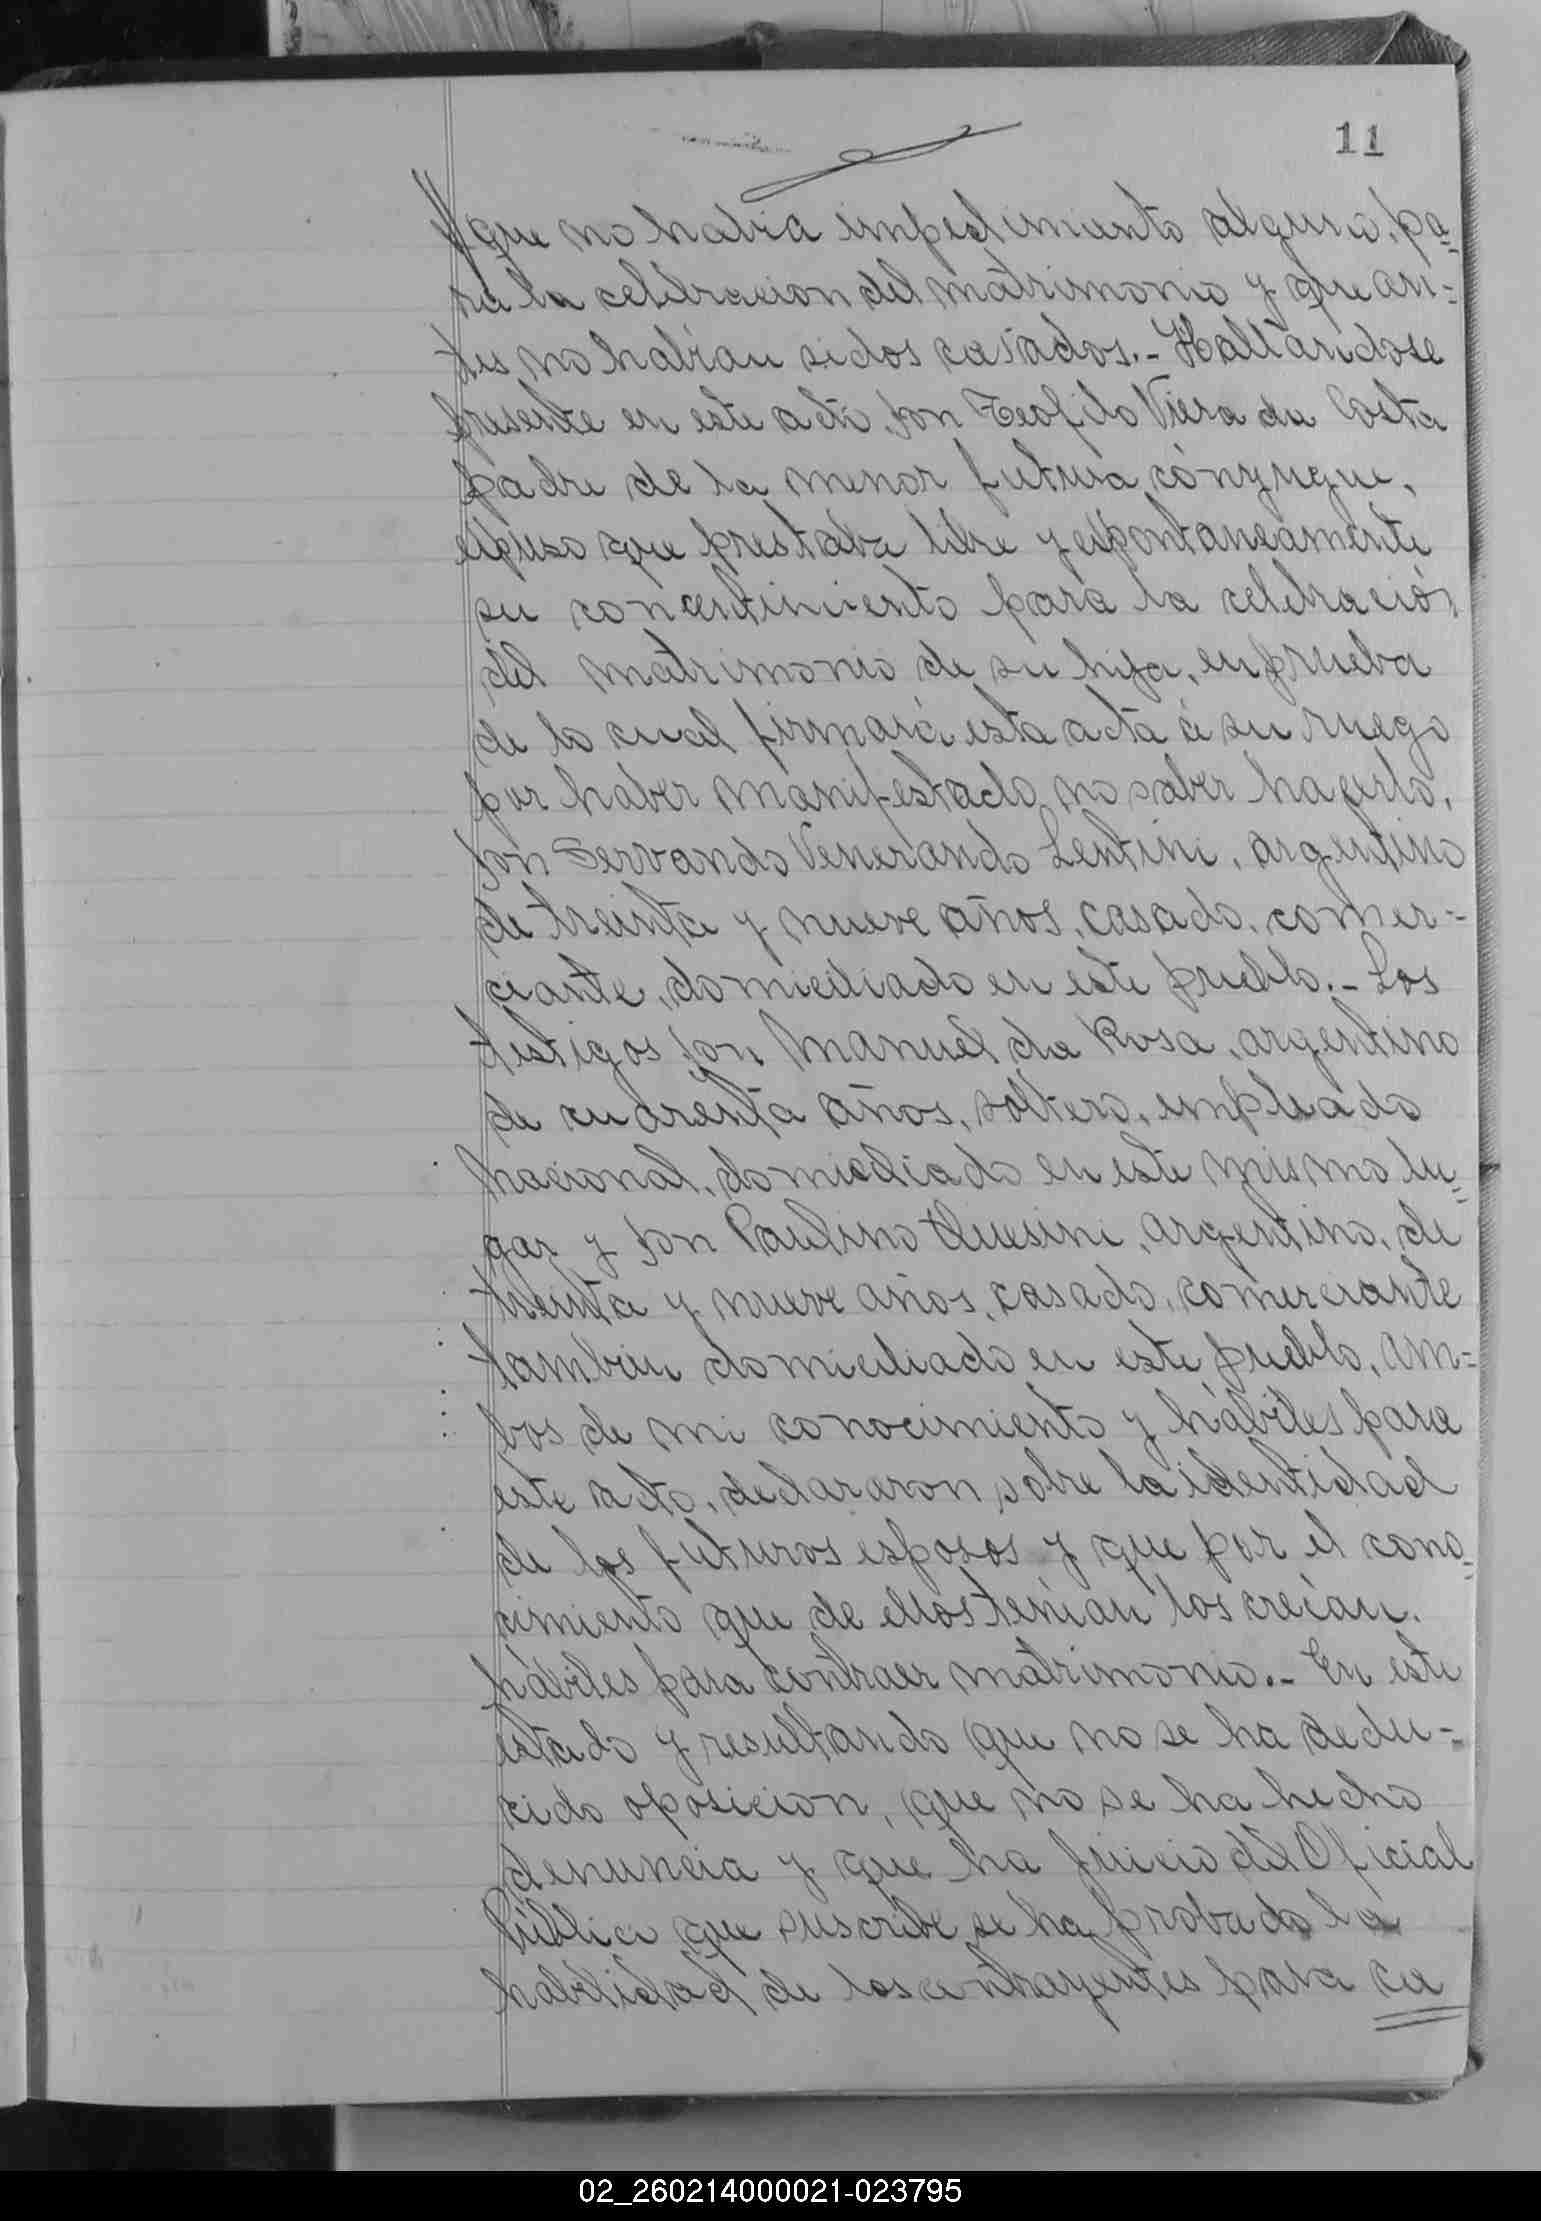 11
que no habia impedimento alguno, pa=
ra la celebracion del matrimonio y que an=
tes no habian sidos casados.- Hallandose
presente en este acto, Don Teofilo Viera da Costa
padre de la menor futura cónyugue,
espuso que prestaba libre y espontaneamente
su concentimiento para la celebración
del matrimonio de su hija, en prueba
de lo cual firmará esta acta á su ruego
por haber manifestado no saber hacerlo,
Don Servando Venerando Lentini, argentino
de treinta y nueve años, casado, comer=
ciante, domiciliado en este pueblo.- Los
testigos Don Manuel da Rosa, argentino
de cuarenta años, soltero, empleado
nacional, domiciliado en este mismo lu=
gar y Don Paulino, argentino, de
treinta y nueve años, casado, comerciante
tambien domiciliado en este pueblo, am=
bos de mi conocimiento y hábiles para
este acto, declararon sobre la identidad
de los futuros esposos y que por el cono=
cimiento que de ellos tenian los creían
hábiles para contraer matrimonio.- En este
estado y resultando que no se ha dedu=
cido oposicion, que no se ha hecho
denuncia y que ha juicio del Oficial
Público que suscribe se ha probado la
habilidad de los contrayentes para ca
02_260214000021-023795